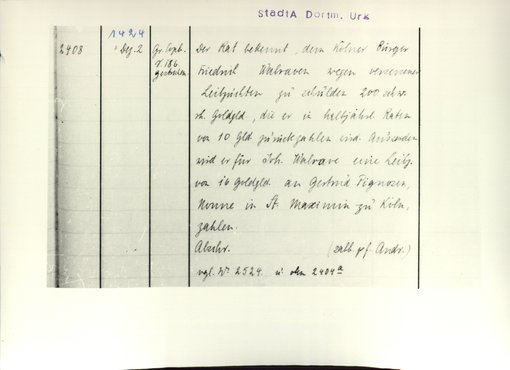 StadtA Dortm. Urk
1424
2408 Dez. 2 Gr. Copb. Der Rat bekennt, dem Kölner Bürger
f. 186 Friedrich Walraven wegen versessener
gestrichen Leibzuchten zu schulden 200 schw.
rh. Goldgld, die er in halbjährl. Raten
von 10 Gld zurückzahlen wird. Ausserdem
wird er für Joh. Walrave eine Leibz.
von 16 Goldgld. an Gertrud Pignozen,
Nonne in St. Maximin zu Köln,
zahlen.
Abschr. (ratb. pf. Andr.)
vgl. Nr. 2524. u. oben 2404a